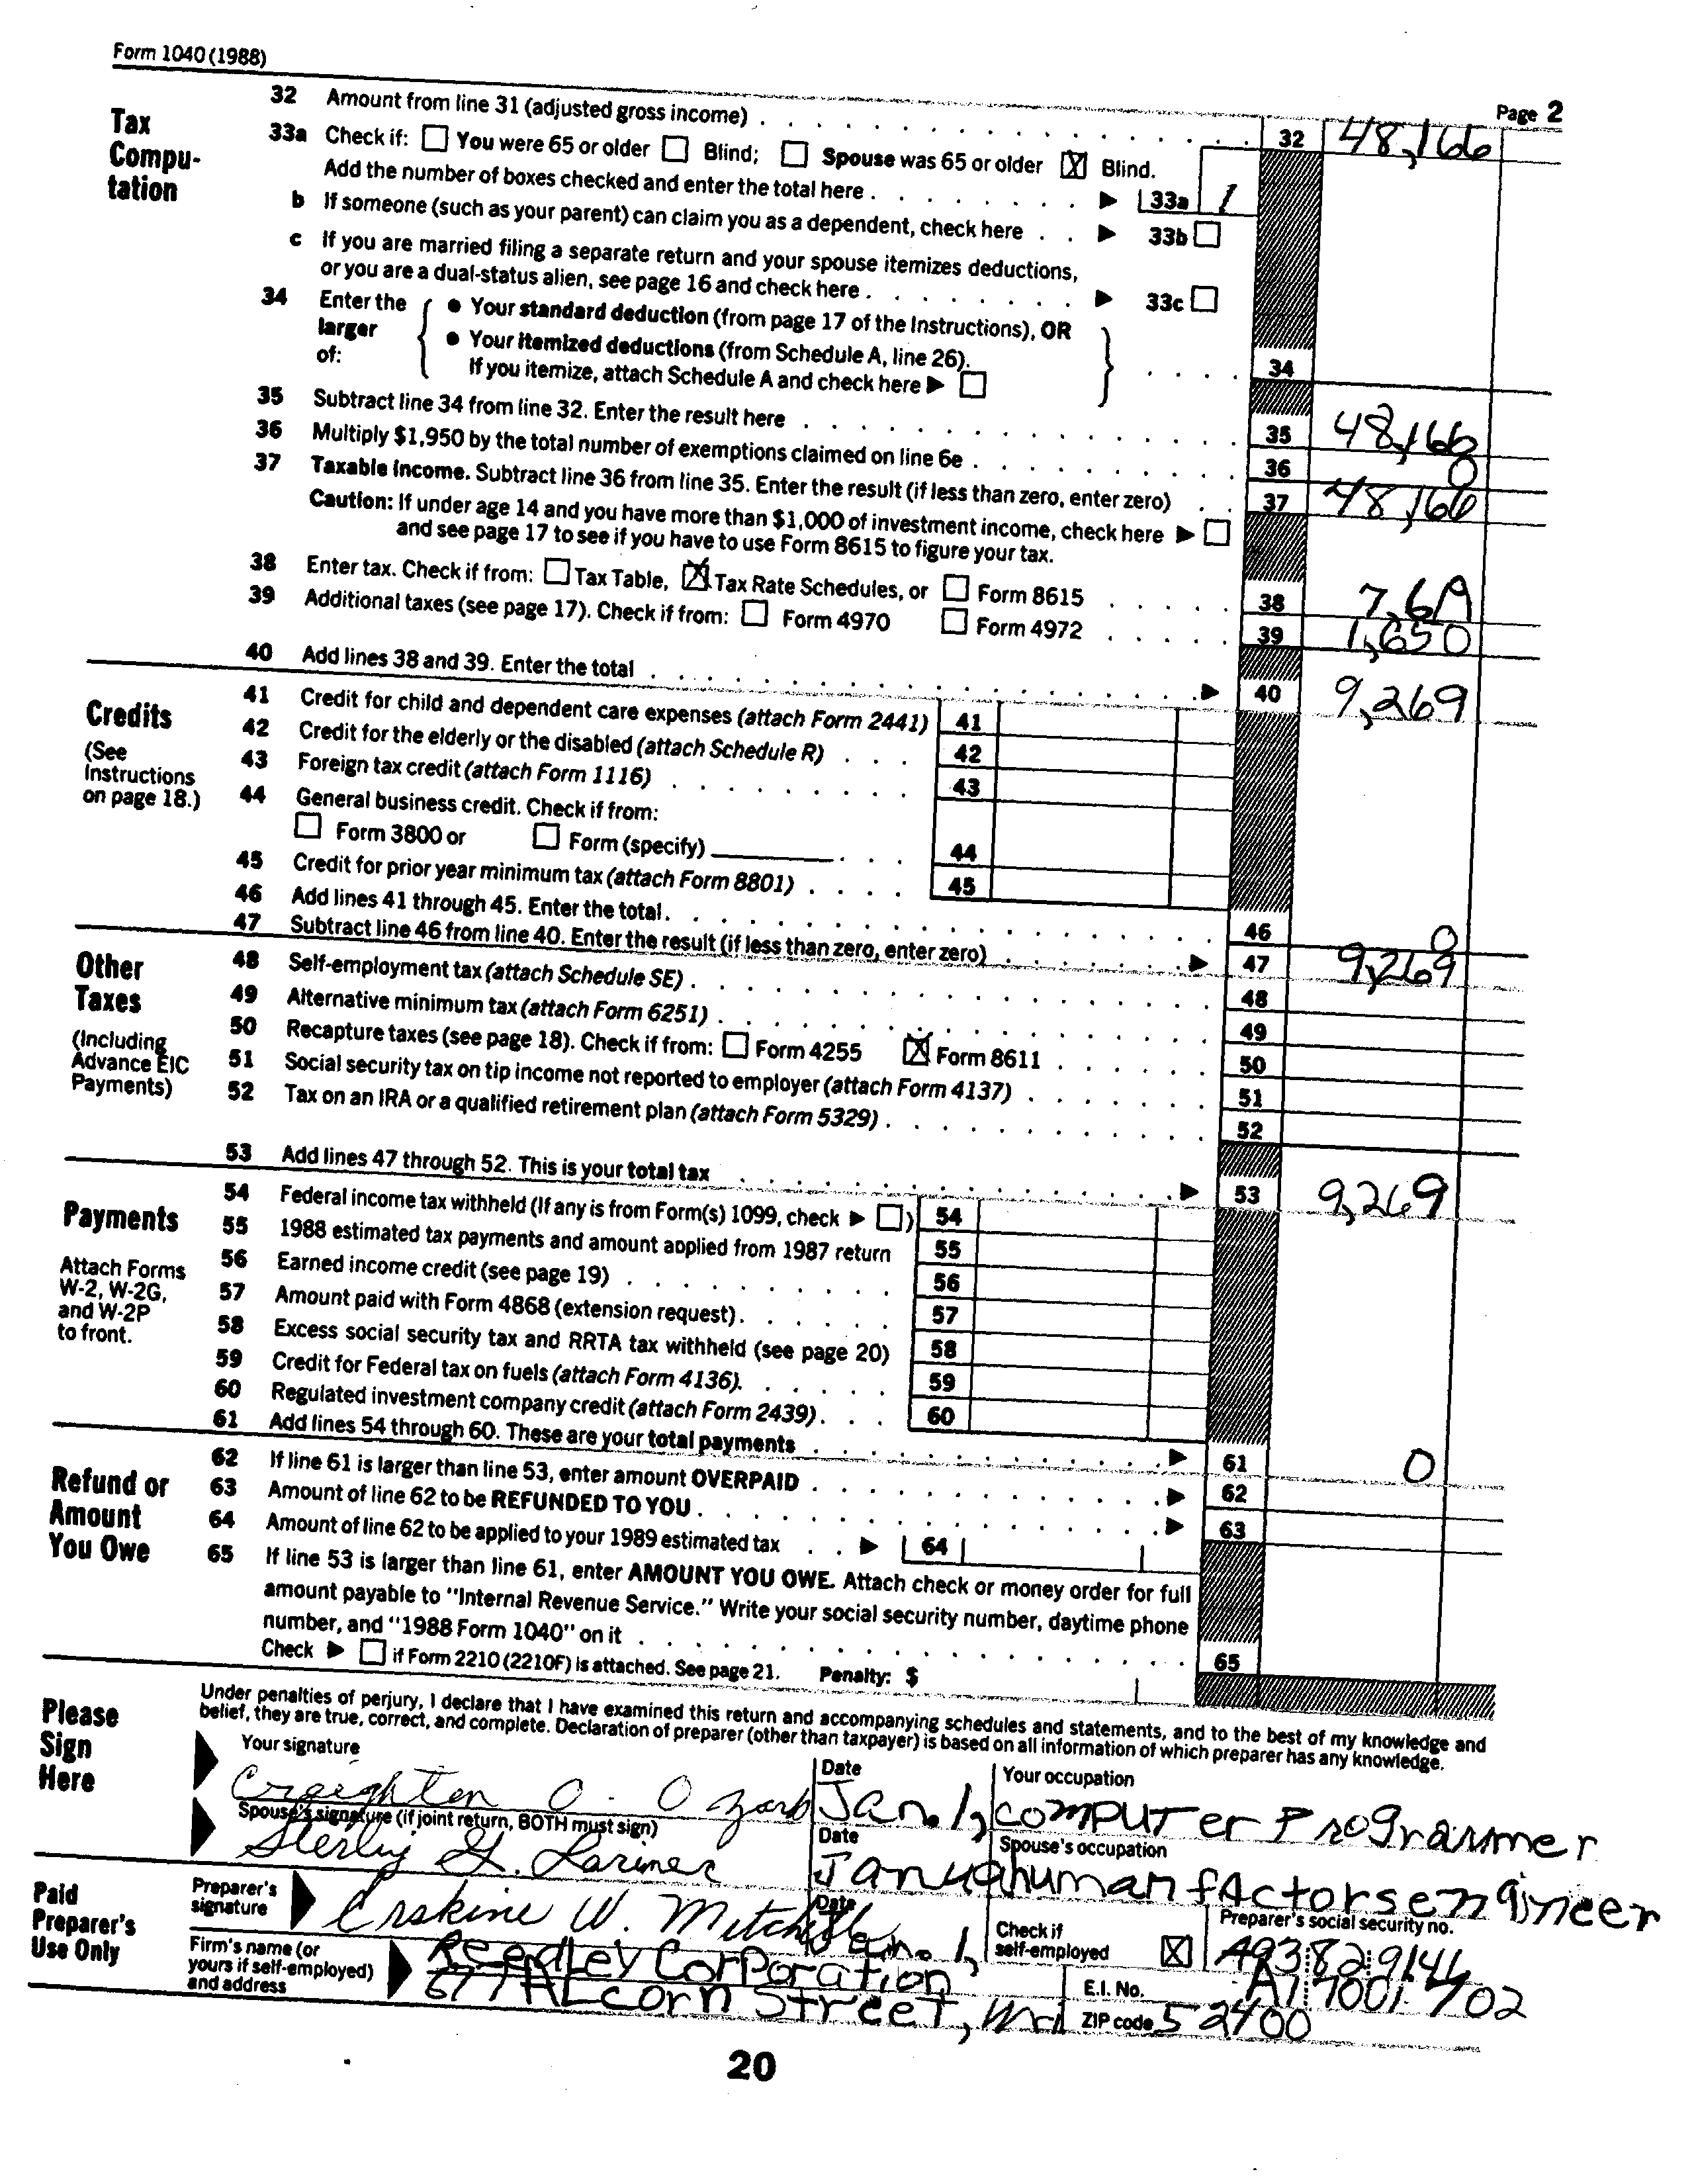 Form 1040 (1988)
Page 2
Tax Compu-tation
32 Amount from line 31 (adjusted gross income) 32 48,166
33a Check if: You were 65 or older Blind; Spouse was 65 or older X Blind.
Add the number of boxes checked and enter the total here 33a 1
b If someone (such as your parent) can claim you as a dependent, check here 33b
c If you are married filing a separate return and your spouse itemizes deductions,
or you are a dual-status alien, see page 16 and check here 33c
34 Enter the larger of:
• Your standard deduction (from page 17 of the Instructions), OR
• Your itemized deductions (from Schedule A, line 26).
If you itemize, attach Schedule A and check here 34
35 Subtract line 34 from line 32. Enter the result here 35 48,166
36 Multiply $1,950 by the total number of exemptions claimed on line 6e 36 0
37 Taxable income. Subtract line 36 from line 35. Enter the result (if less than zero, enter zero) 37 48,166
Caution: If under age 14 and you have more than $1,000 of investment income, check here
and see page 17 to see if you have to use Form 8615 to figure your tax.
38 Enter tax. Check if from: Tax Table, X Tax Rate Schedules, or Form 8615 38
39 Additional taxes (see page 17). Check if from: Form 4970 Form 4972 39 1,650
40 Add lines 38 and 39. Enter the total 40 9,269
Credits
(See Instructions on page 18.)
41 Credit for child and dependent care expenses (attach Form 2441) 41
42 Credit for the elderly or the disabled (attach Schedule R) 42
43 Foreign tax credit (attach Form 1116) 43
44 General business credit. Check if from:
Form 3800 or Form (specify) 44
45 Credit for prior year minimum tax (attach Form 8801) 45
46 Add lines 41 through 45. Enter the total 46 0
47 Subtract line 46 from line 40. Enter the result (if less than zero, enter zero) 47 9,269
Other Taxes
(Including Advance EIC Payments)
48 Self-employment tax (attach Schedule SE) 48
49 Alternative minimum tax (attach Form 6251) 49
50 Recapture taxes (see page 18). Check if from: Form 4255 X Form 8611 50
51 Social security tax on tip income not reported to employer (attach Form 4137) 51
52 Tax on an IRA or a qualified retirement plan (attach Form 5329) 52
53 Add lines 47 through 52. This is your total tax 53 9,269
Payments
Attach Forms W-2, W-2G, and W-2P to front.
54 Federal income tax withheld (If any is from Form(s) 1099, check ) 54
55 1988 estimated tax payments and amount applied from 1987 return 55
56 Earned income credit (see page 19) 56
57 Amount paid with Form 4868 (extension request) 57
58 Excess social security tax and RRTA tax withheld (see page 20) 58
59 Credit for Federal tax on fuels (attach Form 4136) 59
60 Regulated investment company credit (attach Form 2439) 60
61 Add lines 54 through 60. These are your total payments 61 0
Refund or Amount You Owe
62 If line 61 is larger than line 53, enter amount OVERPAID 62
63 Amount of line 62 to be REFUNDED TO YOU 63
64 Amount of line 62 to be applied to your 1989 estimated tax 64
65 If line 53 is larger than line 61, enter AMOUNT YOU OWE. Attach check or money order for full
amount payable to "Internal Revenue Service." Write your social security number, daytime phone
number, and "1988 Form 1040" on it 65
Check if Form 2210 (2210F) is attached. See page 21. Penalty: $
Please Sign Here
Under penalties of perjury, I declare that I have examined this return and accompanying schedules and statements, and to the best of my knowledge and
belief, they are true, correct, and complete. Declaration of preparer (other than taxpayer) is based on all information of which preparer has any knowledge.
Your signature Date Your occupation
Creighton O. Ozark Jan. 1, computer Programmer
Spouse's signature (if joint return, BOTH must sign) Date Spouse's occupation
Sterling G. Larimer Janua human factors engineer
Paid Preparer's Use Only
Preparer's signature Erskine W. Mitchell Date Jan. 1, Check if self-employed X Preparer's social security no.
Firm's name (or yours if self-employed) and address Reedley Corporation E.I. No.
677 Alcorn Street, ZIP code 52400
20